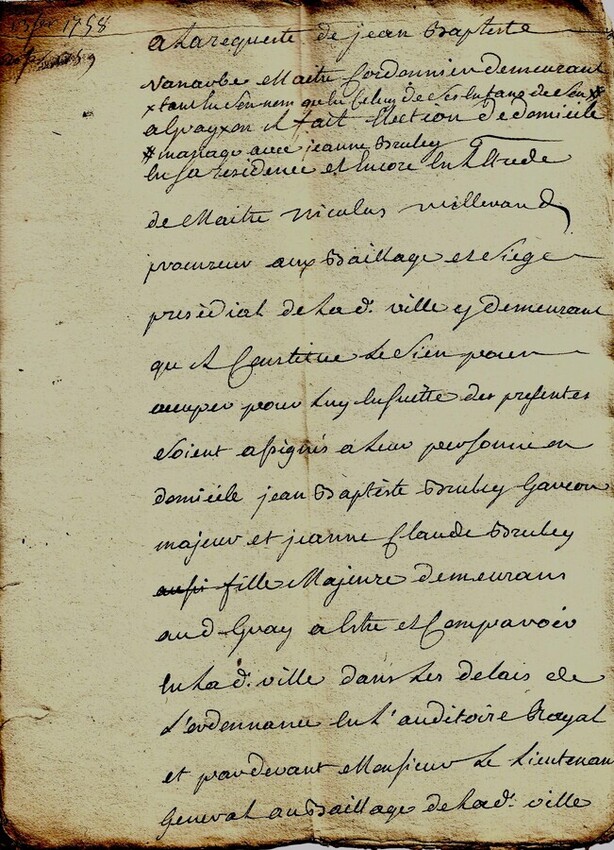 1758
a La requeste de jean Baptiste
Maitre Cordonnier demeurant
x tant en son nom qu'en celuy de ses enfans de son #
a Gray, ou il fait Election de domicile
# mariage avec jeanne Brusley
en sa residence et Encore en l'Etude
de Maitre Nicolas
procureur aux Baillage et Siege
presidial de lad. ville y demeurant
qu'il Constitue le sien pour
occuper pour Luy ensuitte des presentes
soient assignés a leur personne ou
domicile jean Baptiste Brusley Garcon
majeur et jeanne Claude Brusley
aussi fille Majeure demeurans
aud. Gray a Estre et Comparoir
en lad. ville dans Les delais de
L'ordonnance en L'auditoire Royal
et pardevant Monsieur Le Lieutenan
General au Baillage de lad. ville